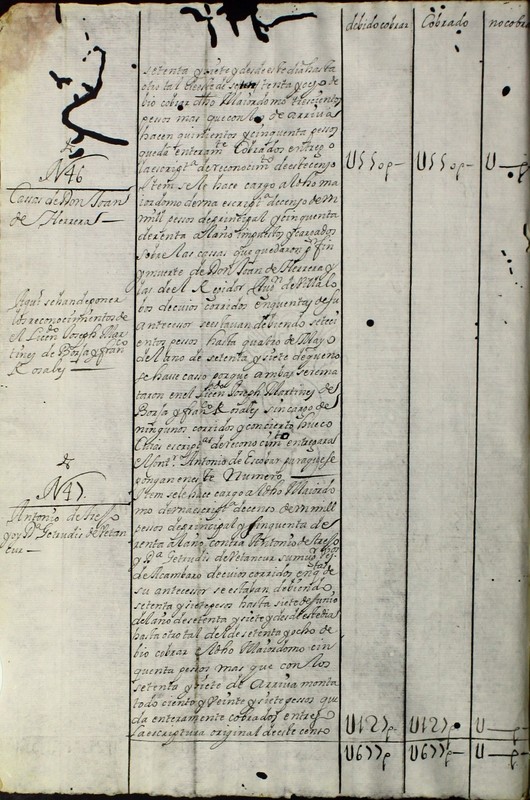 debido cobrar Cobrado no cobra
setenta y siete y desde este dia hasta
otro tal del de setenta y ocho de
bio cobrar dho Maiordomo trescientos
pesos mas que con los de arriva
hacen quinientos y cinquenta pesos
queda enteramte Cobrados entrego
la escriptra de reconocimto de este censo U550p— U550p— U—p
N46
Cassas de Don Joan
de Herrera—
Item se le hace cargo al dho ma
iordomo de una escriptra de censo de un
mill pesos de principal y cinquenta
de renta al año impuestos y cargados
sobre las cassas que quedaron pr fin
y muerte de Don Joan de Herrera y
las de el Regidor de Villalo
bos de cuios corridos en quenta de su
antecesor se estavan debiendo seteci
entos pesos hasta quatro de Mayo
del año de setenta y siete de que no
se hase caso porque ambas se rema
taron en el Licendo Joseph Martines de
Borja y franco Ronales sin cargo de
ningunos corridos y concierto hueco
Cuias escriptras de reconocimto entregaras
Antonio de Escobar para que se
pongan en este Numero
Aqui se han de poner
los reconocimientos de
el Licendo Joseph Mar
tines de Borja y franco
Ronales—
N47
Antonio de
y Da Getrudis de Vetan
cur—
Item se le hace cargo al dho Maiordo
mo de una escriptra de censo de un mill
pesos de principal y sinquenta de
renta al año contra Antonio de
y Da Getrudis de Vetancur su muger Vesos
de Acambaro de cuios corridos en qta de
su antecesor se estaban debiendo
setenta y siete pesos hasta siete de Junio
del año de setenta y siete y desde este dia
hasta otro tal del de setenta y ocho de
bio cobrar el dho Maiordomo cin
quenta pesos mas que con los
setenta y siete de Arriva monta
todo ciento y veinte y siete pesos que
da enteramente cobrados entrego
la escriptura original de este censo U127p U127p U—p
U677p U677p— U—p